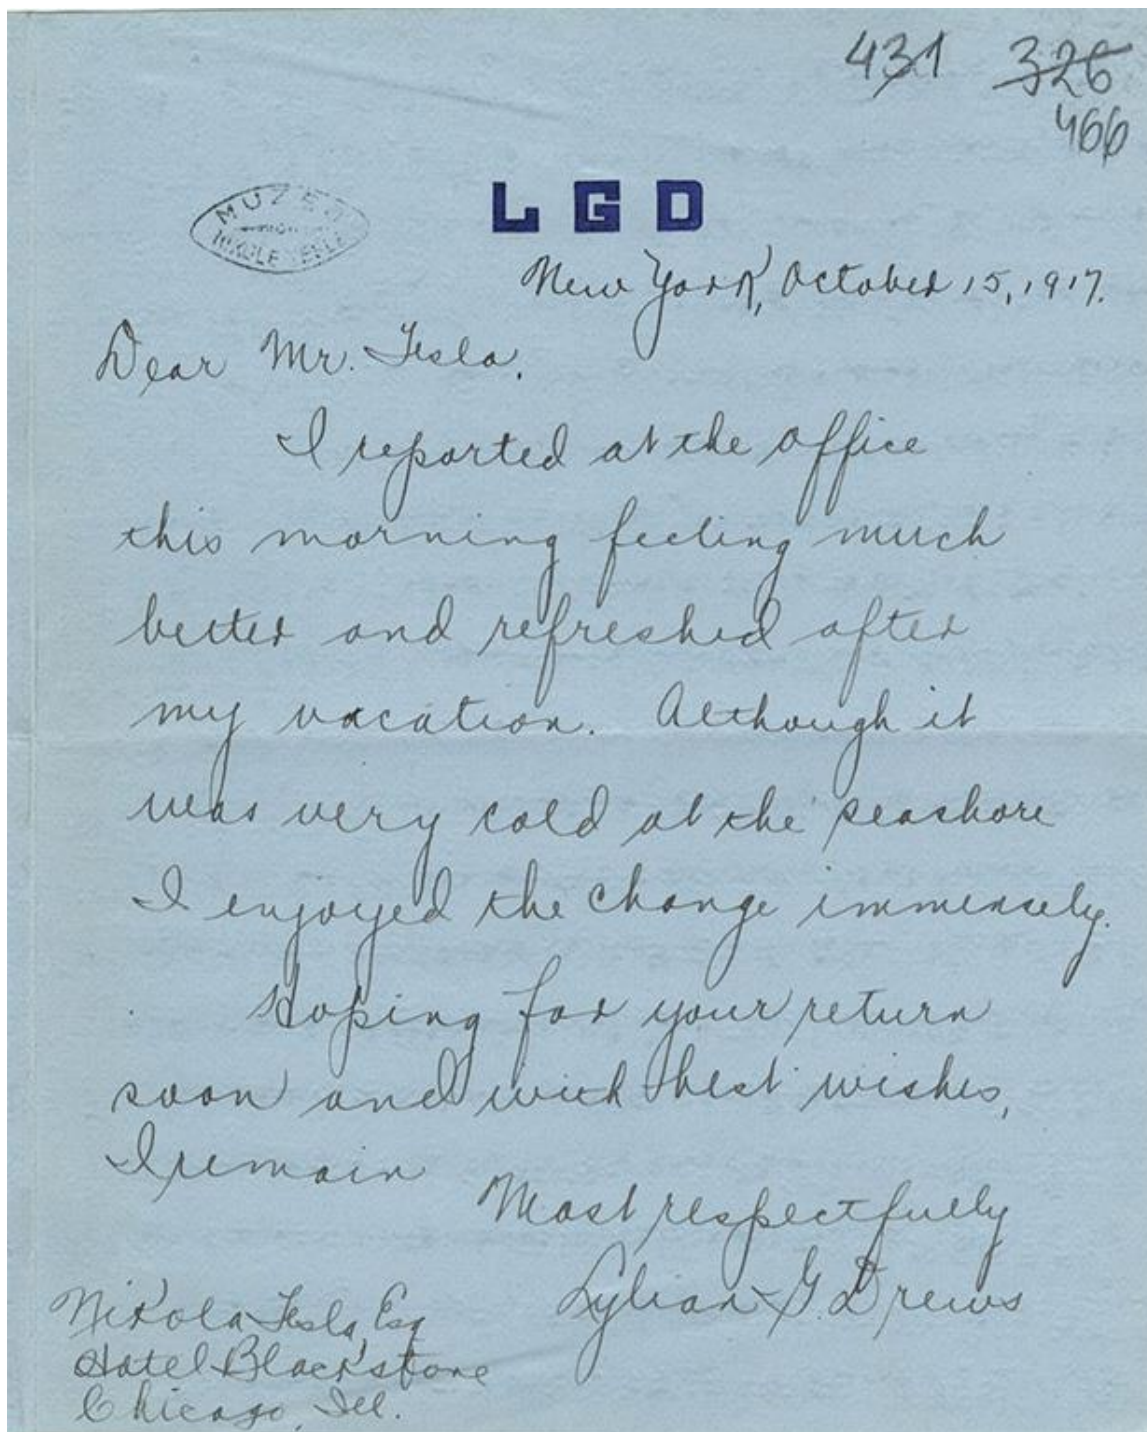 431 326
466
MUZEJ
NIKOLE TESLE
L G D
New York, October 15, 1917.
Dear Mr. Tesla,
I reported at the office
this morning feeling much
better and refreshed after
my vacation. Although it
was very cold at the seashore
I enjoyed the change immensely.
Hoping for your return
soon and with best wishes,
I remain
Most respectfully
Lylian G. Drews
Nikola Tesla, Esq
Hotel Blackstone
Chicago, Ill.